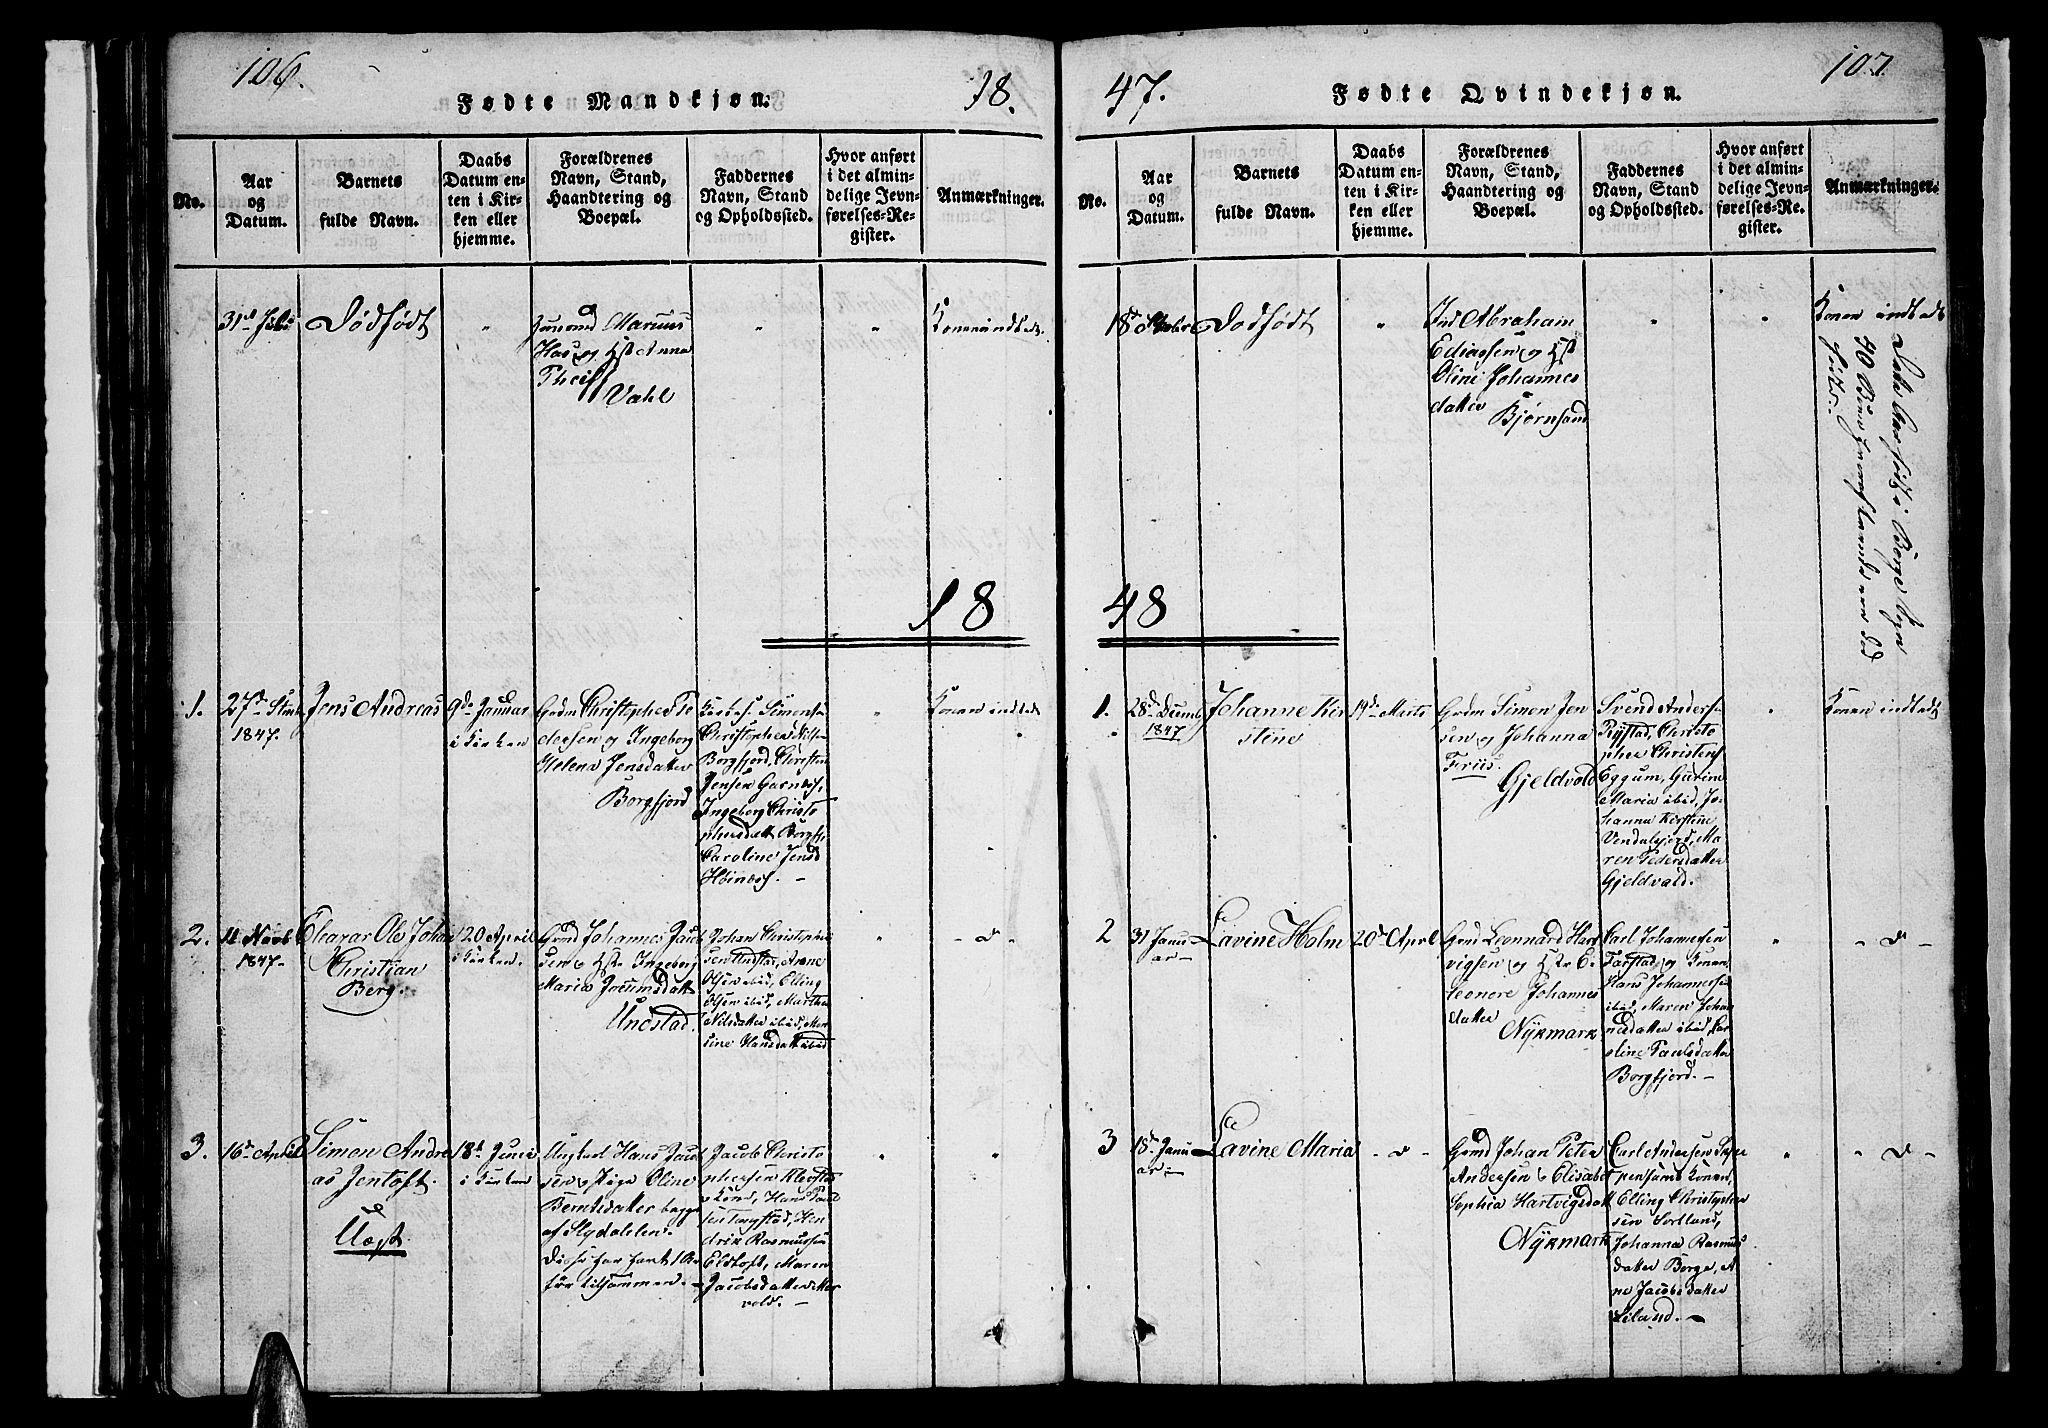 106.
Fødte Mandkjøn.
18.
No.
Aar
og
Datum.
Barnets
fulde Navn.
Daabs
Datum en-
ten i Kir-
ken eller
hjemme.
Forældrenes
Navn, Stand,
Haandtering og
Boepæl.
Faddernes
Navn, Stand
og Opholdssted.
Hvor anført
i det almin-
delige Jevn-
førelses-Re-
gister.
Anmærkninger.
31te Juli
Dødfødt
"
Huusmd Marcus
Has og Hst Anna
Theil
Vahl
"
"
Konen indledt.
18
1.
27de Septb
1847.
Jens Andreas
9de Januar
i Kirken
Grdm Christopher Pe
dersen og Ingeborg
Helena Jensdatter
Borgfjord
Simonsen
Christopher Nilsen
Borgfjord, Christen
Jensen Garnes,
Ingeborg Christo
phersdatt Borgfj.
Caroline Jensd
Høines. -
"
Konen indledt
2.
11 Novb
1847-
Eleazar Ole Johan
Christian
Berg.
20 April
i Kirken.
Grmd Johannes Jacob
sen og Hst Ingeborg
Maria Joramsdatt
Unestad.
Johan Christopher
sen Unstad, Anne
Olsen ibid, Elling
Olsen ibid, Marthe
Nilsdatter ibid,
sine Hansdatt ibid
"
- d -
3.
16de April
Simon Andre
as Jentoft.
Uægt.
18de Juni
i Kirken
Ungkarl Hans Jacob
sen og Pige Oline
Berntsdatter begge
af Slydalen.
Disse har havt 1 Barn
før tilsammen. -
Jacob Christo
phersen Klevstad
og Kone, Hans Paul
sen Tangstad, Hen
drik Rasmussen
Eltoft, Maren
Jacobsdatter Mær
vold. -
"
"
107
Fødte Qvindekjøn.
47.
No.
Aar
og
Datum.
Barnets
fulde Navn.
Daabs
Datum en-
ten i Kir-
ken eller
hjemme.
Forældrenes
Navn, Stand,
Haandtering og
Boepæl.
Faddernes
Navn, Stand
og Opholdssted.
Hvor anført
i det almin-
delige Jevn-
førelses-Re-
gister.
Anmærkninger.
18de
Dødfødt
"
Ind Abraham
Ediassen og Hst
Oline Johannes
datter
Bjørnsand
"
"
Konen indledt
Dette Aar født i Borge Sogn
40 Børn
fødte.
48
1.
28de Decmb
1847
Johanne Kir
stine
19de Marts
Grdm Simon Jen
sen og Johanna
Friis.
Gjeldvold
Svend Anders.
Rystad, Christo
pher Christens
Eggum, Gurine
Maria ibid, Jo-
hanna Kirstine
Vendalsjord, Ma
ren Pedersdatter
Gjeldvald.
"
Konen indledt
2
31 Janu
ar -
Lavine Holm
20de April
Grmd Leonnard Hart
vigsen og Hst E-
leonore Johannes
datter
Nykmark
Carl Johannesen
Farstad og Konen,
Hans Johannesen
ibid, Maren Johan
nesdatter ibid, Ka-
roline Paulsdatter
Borgfjord. -
"
" d -
3
18de Janu
ar -
Lavine Maria
- d -
Grmd Johan Peter
Andersen & Elisabet
Sophia Hartvigsdatt
Nykmark
Carl Andersen
Konen,
Elling Christopher
sen Sortland,
Johanna Rasmus
datter Borge, A
ne Jacobsdatter
Liland. -
"
- d -